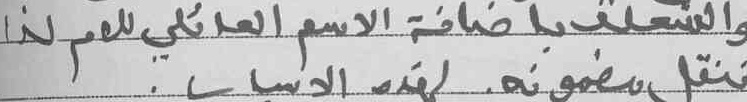 والمتعلق باضافة الاسم العائلي للام لذا
ننقل مضمونه. لهذه الاسباب :